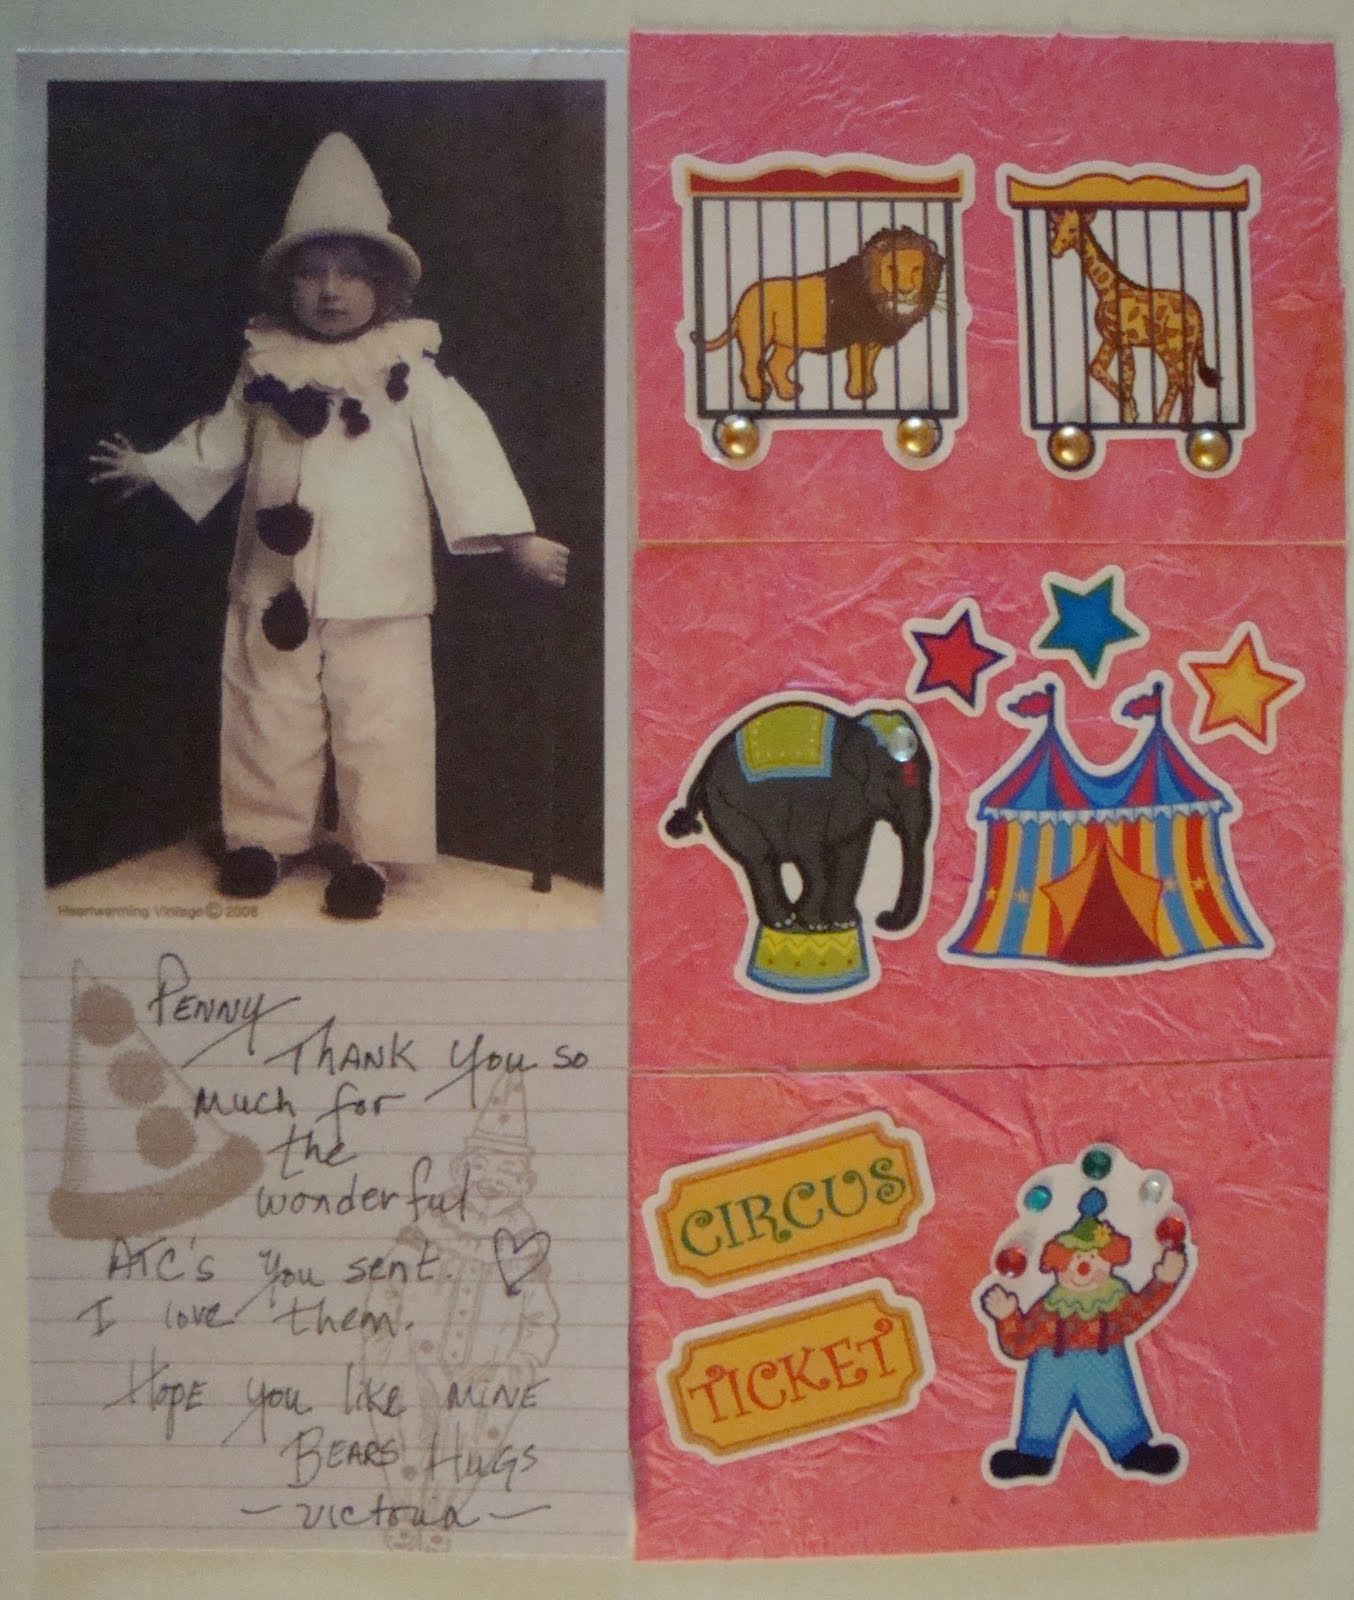 Heartwarming Vintage © 2008
PENNY
THANK YOU SO
much for
the
wonderful
ATC's you sent.
I love them.
HOPE you like MINE
BEARS HUGS
- Victoria -
CIRCUS
TICKET